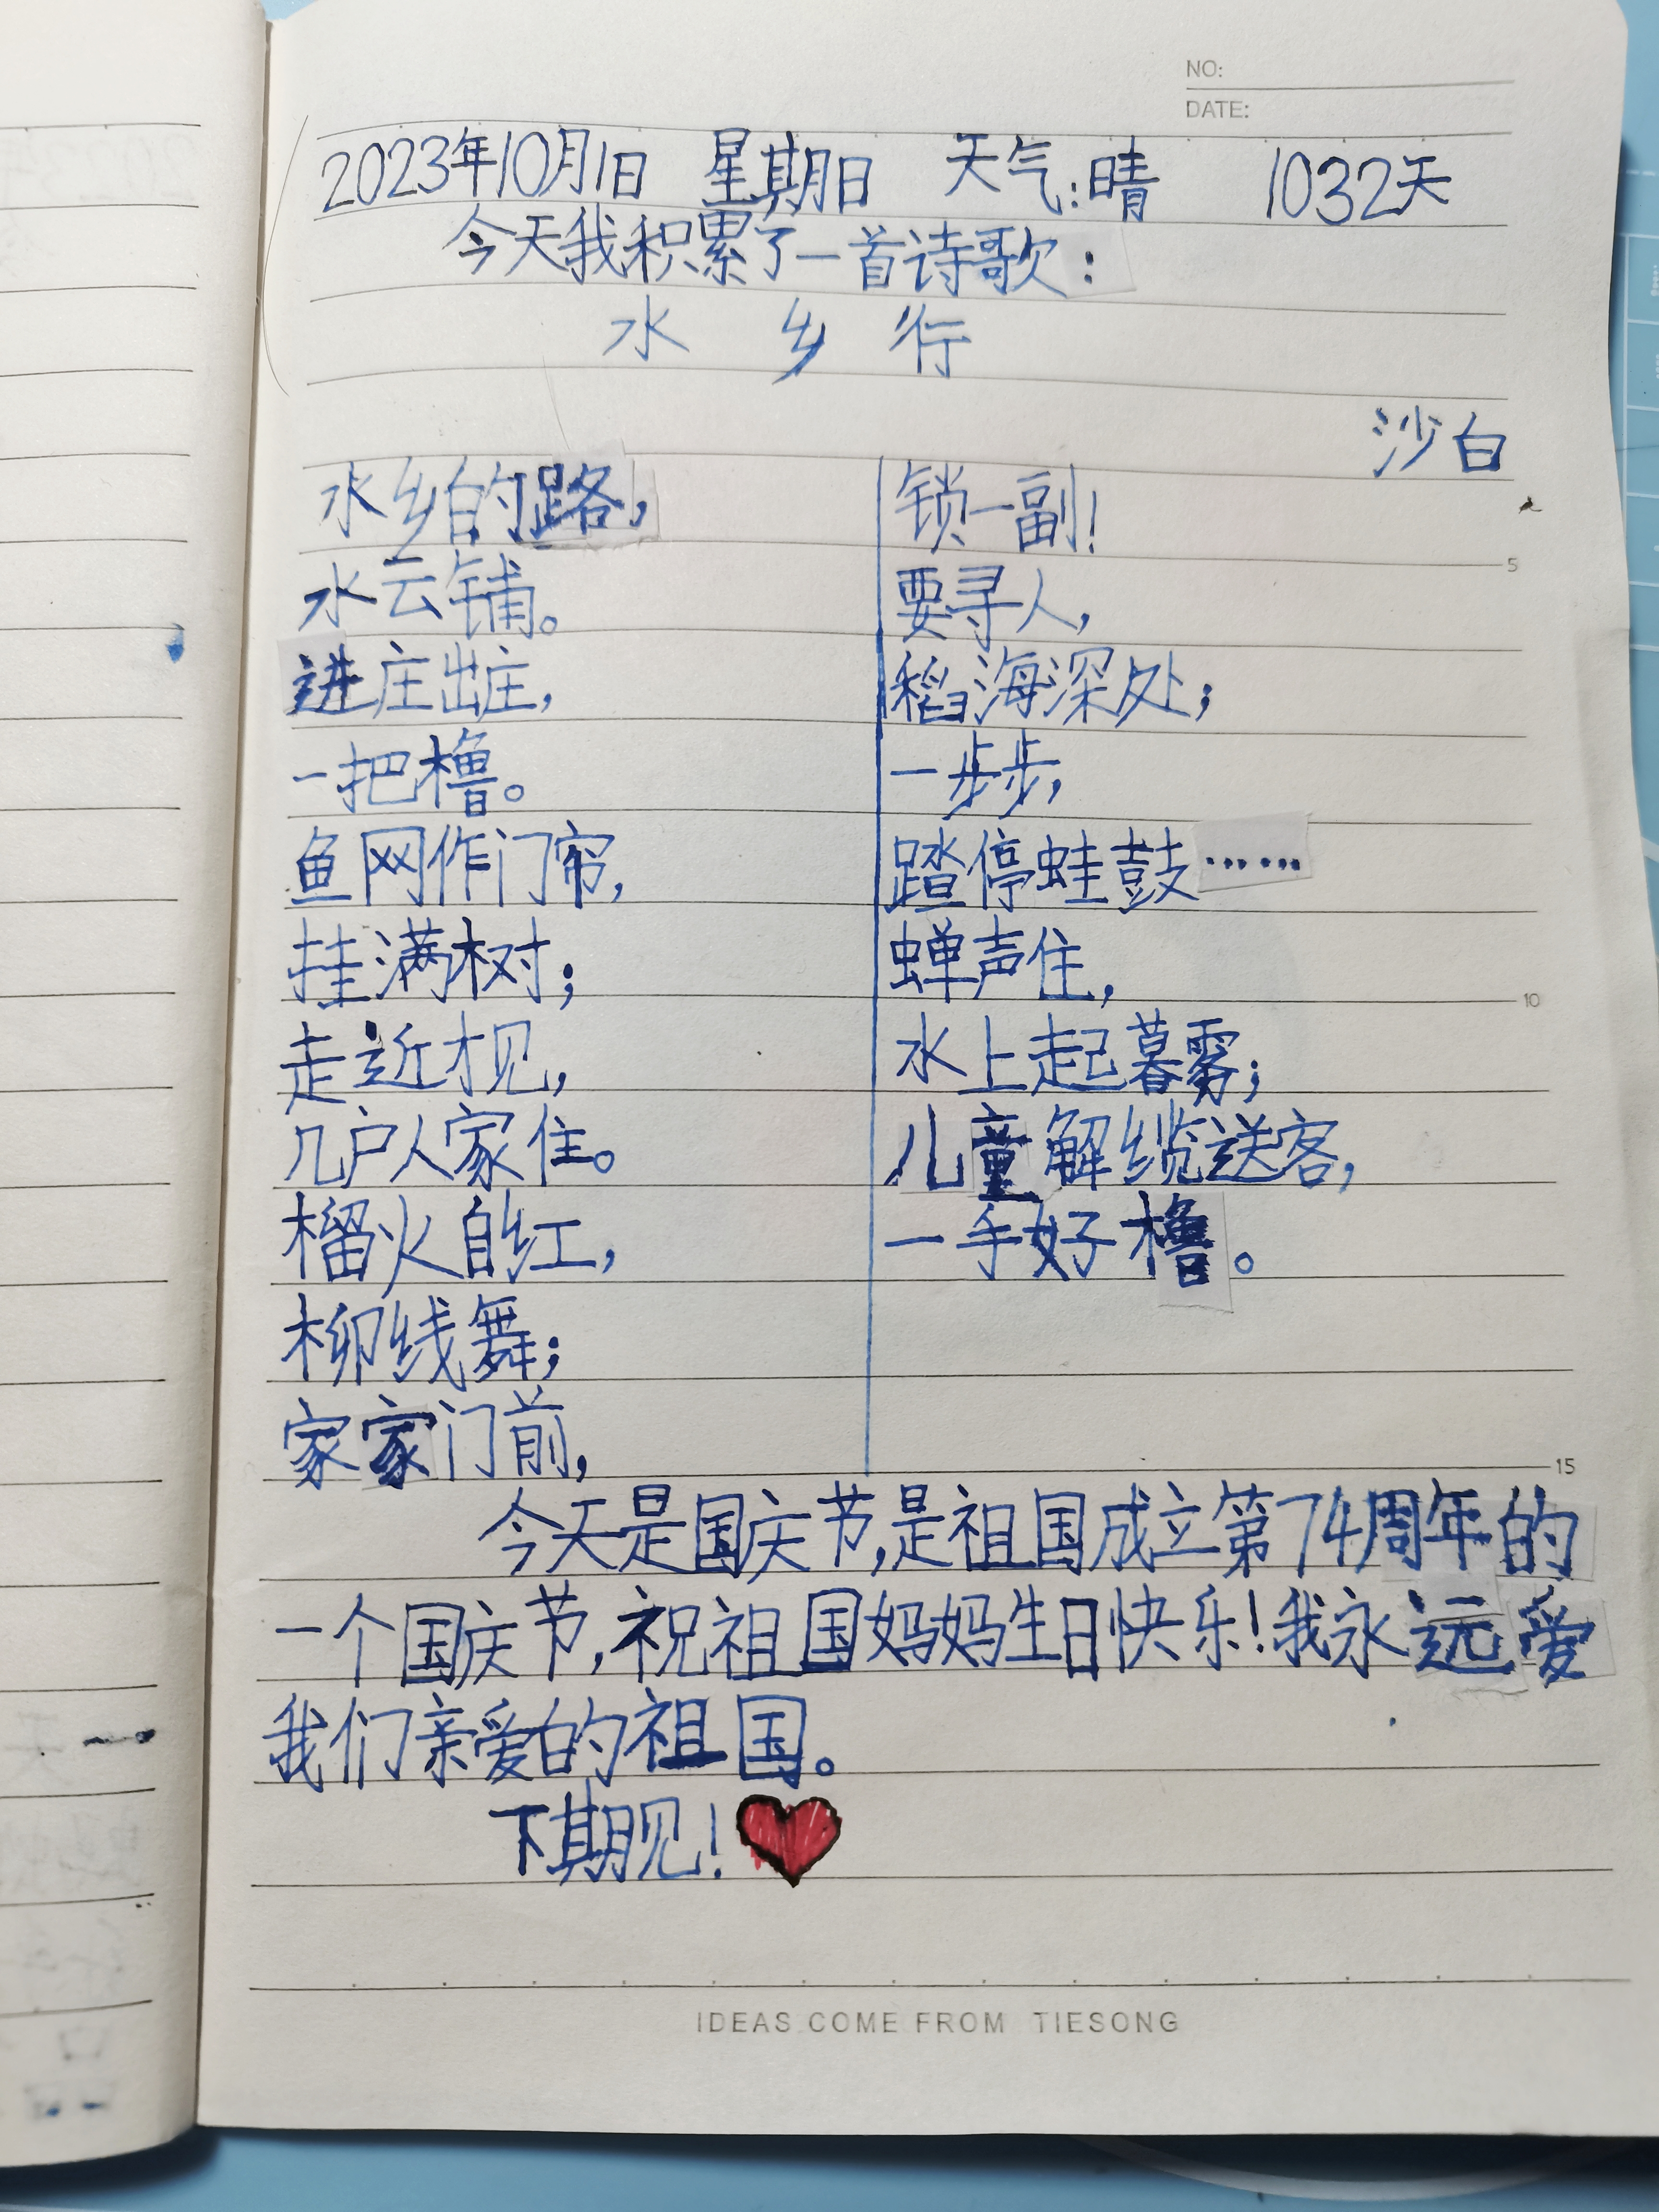 NO:
DATE:
2023年10月1日 星期日 天气:晴 1032天
今天我积累了一首诗歌:
水乡行
沙白
水乡的路,
水云铺。
进庄出庄,
一把橹。
鱼网作门帘,
挂满树;
走近才见,
几户人家住。
榴火自红,
柳线舞;
家家门前,
锁一副!
要寻人,
稻海深处;
一步步,
踏停蛙鼓……
蝉声住,
水上起暮雾;
儿童解缆送客,
一手好橹。
5
10
15
今天是国庆节,是祖国成立第74周年的
一个国庆节,祝祖国妈妈生日快乐!我永远爱
我们亲爱的祖国。
下期见!
IDEAS COME FROM TIESONG